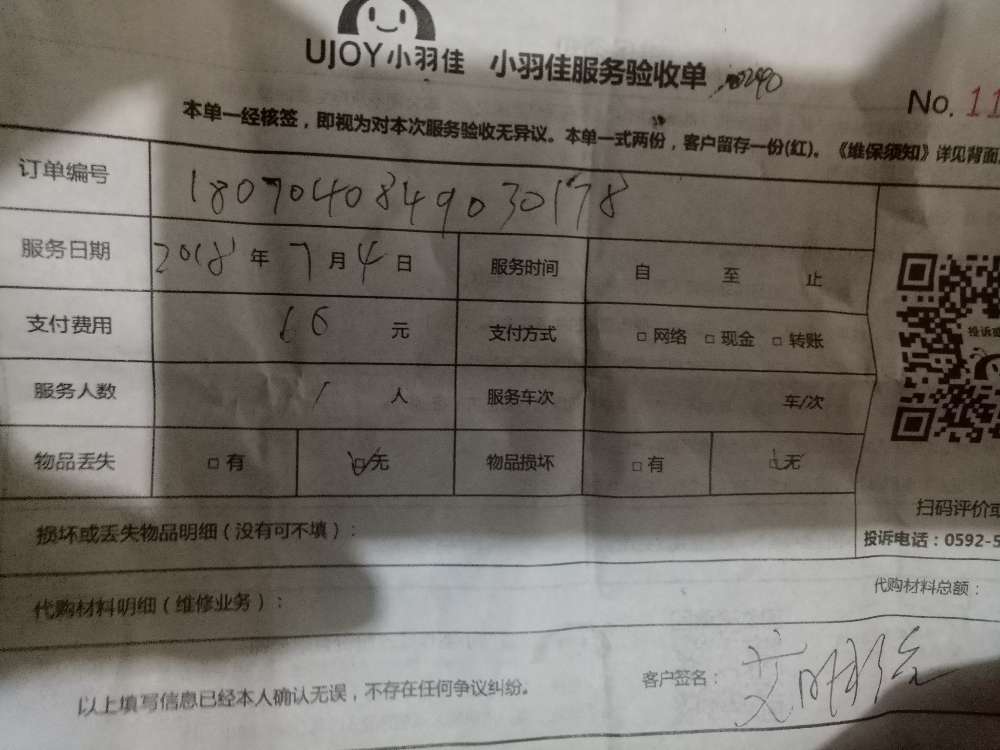 UJOY小羽佳 小羽佳服务验收单
No. 11
本单一经核签，即视为对本次服务验收无异议。本单一式两份，客户留存一份(红)。《维保须知》详见背面
订单编号 1807040849030178
服务日期 2018年7月4日 服务时间 自 至 止
支付费用 16 元 支付方式 □ 网络 □ 现金 □ 转账
服务人数 1 人 服务车次 车/次
物品丢失 □ 有 ☑ 无 物品损坏 □ 有 ☑ 无
投诉
损坏或丢失物品明细（没有可不填）：
扫码评价
投诉电话：0592-5
代购材料明细（维修业务）：
代购材料总额：
以上填写信息已经本人确认无误，不存在任何争议纠纷。
客户签名：